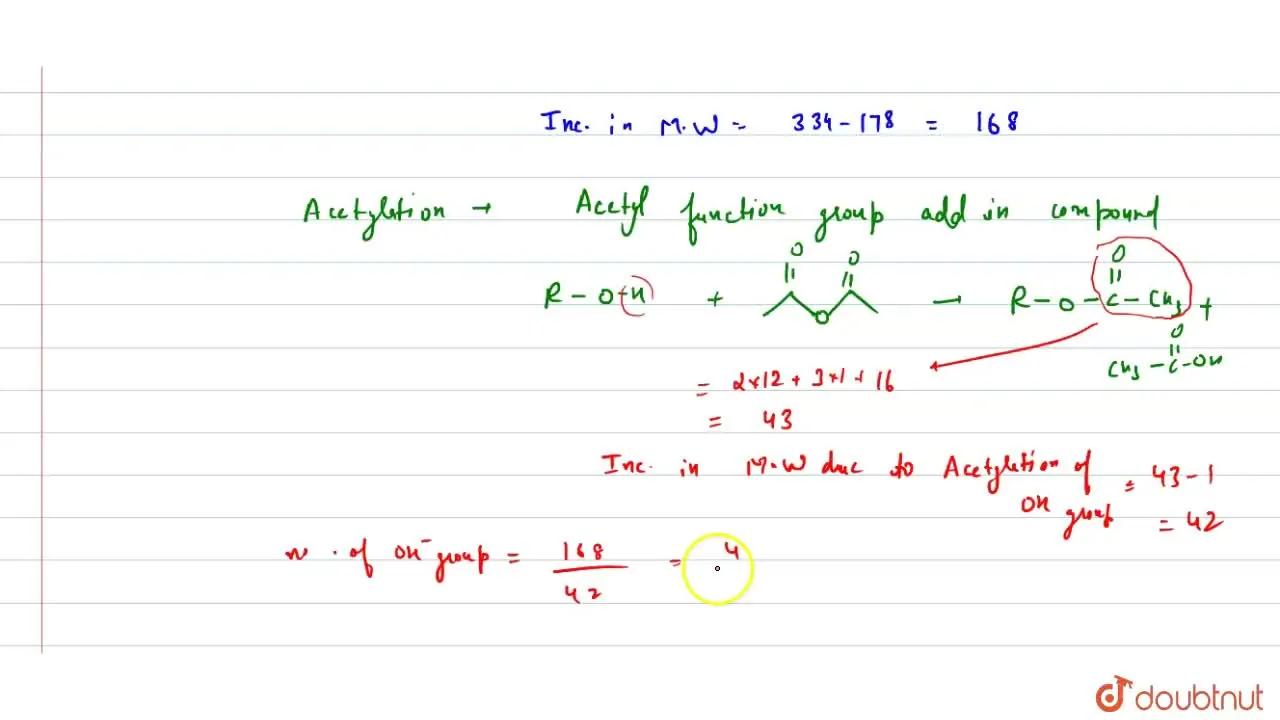 Inc. in M.W = 334 - 178 = 168
Acetyletion → Acetyl function group add in compound
O O O
|| || ||
R - O - H + O → R - O - C - CH3 +
O
||
CH3 - C - OH
= 2×12 + 3×1 + 16
= 43
Inc. in M.W due to Acetyletion of OH group = 43 - 1
= 42
n. of OH- group = 168 / 42 = 4
doubtnut